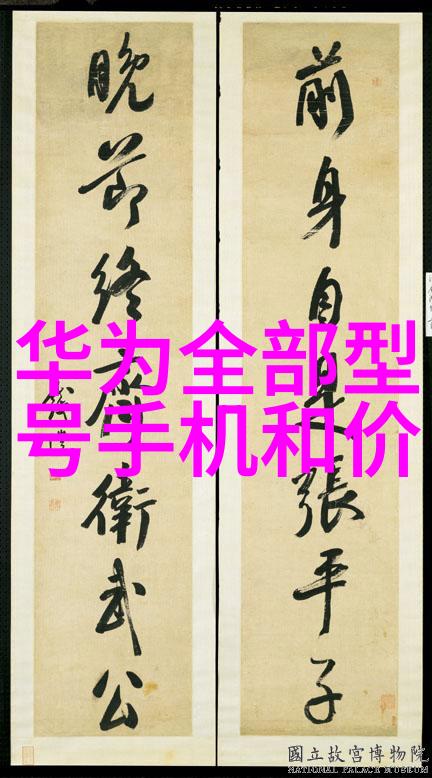 前身自是張平子
晚節終齊衛武公
華为全部型
号手机和价
國立故宮博物院
NATIONAL PALACE MUSEUM